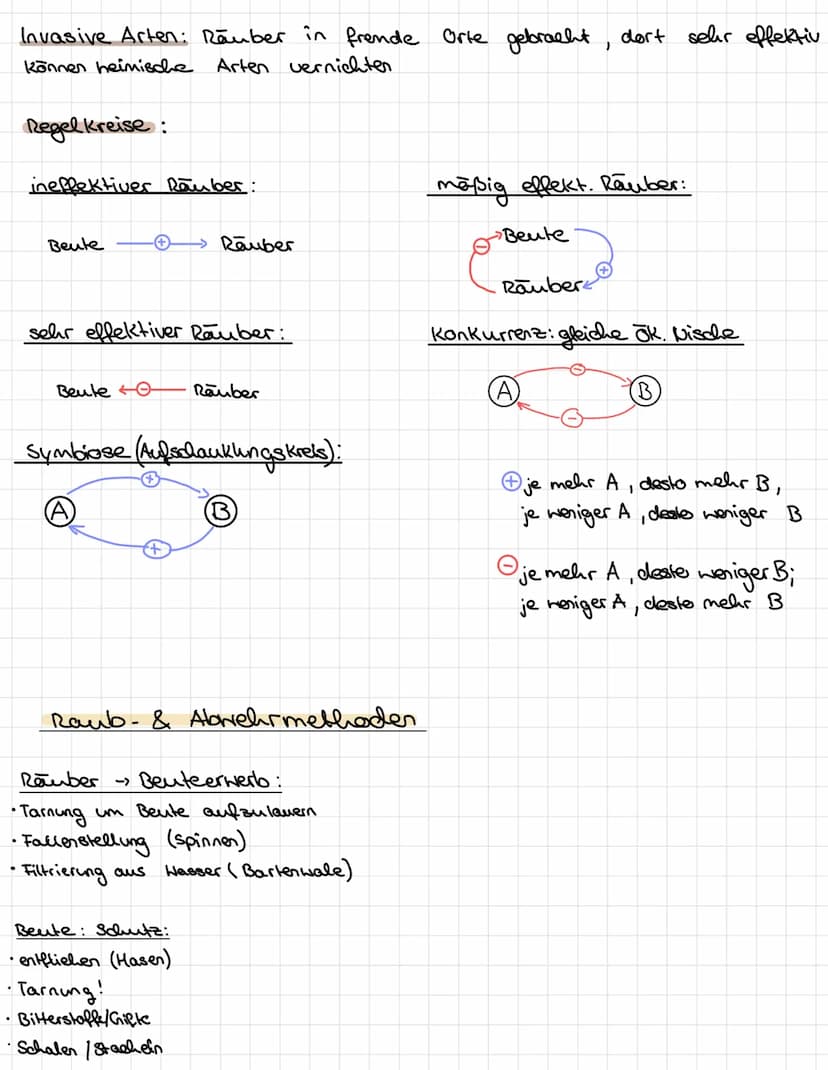 Invasive Arten: Räuber in fremde Orte gebracht, dort sehr effektiv
können heimische Arten vernichten
Regelkreise:
ineffektiver Räuber:
Beute + Räuber
mäßig effekt. Räuber:
Beute
−
+
Räuber
sehr effektiver Räuber:
Beute − Räuber
Konkurrenz: gleiche Ök. Nische
−
A B
−
Symbiose (Aufschauklungskreis):
+
A B
+
+ je mehr A, desto mehr B,
je weniger A, desto weniger B
− je mehr A, desto weniger B;
je weniger A, desto mehr B
Raub- & Abwehrmethoden
Räuber → Beuteerwerb:
· Tarnung um Beute aufzulauern
· Fallenstellung (Spinnen)
· Filtrierung aus Wasser (Bartenwale)
Beute: Schutz:
· entfliehen (Hasen)
· Tarnung!
· Bitterstoffe/Gifte
· Schalen / Stacheln